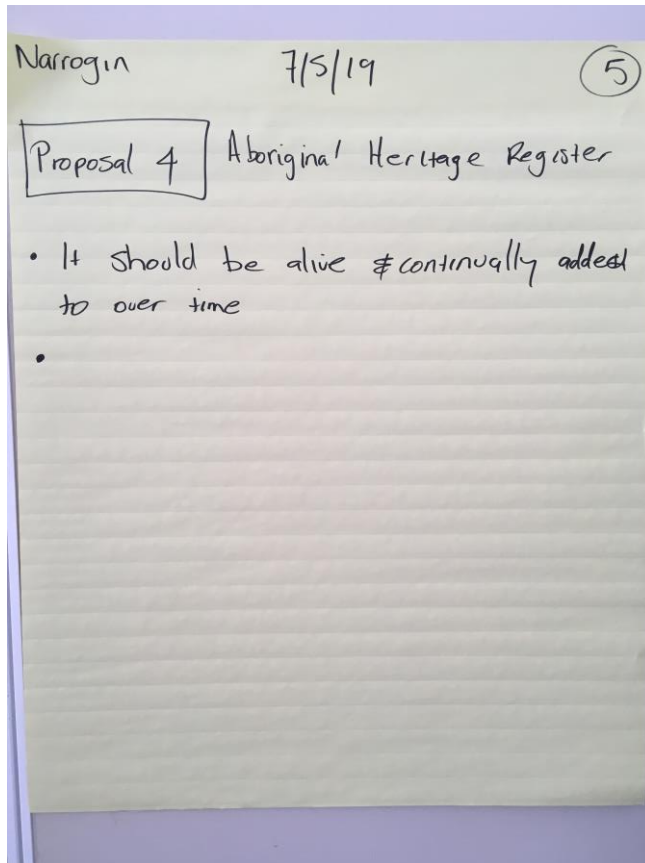 Narrogin 7/5/19 5
Proposal 4 Aboriginal Heritage Register
• It should be alive & continually added
to over time
•